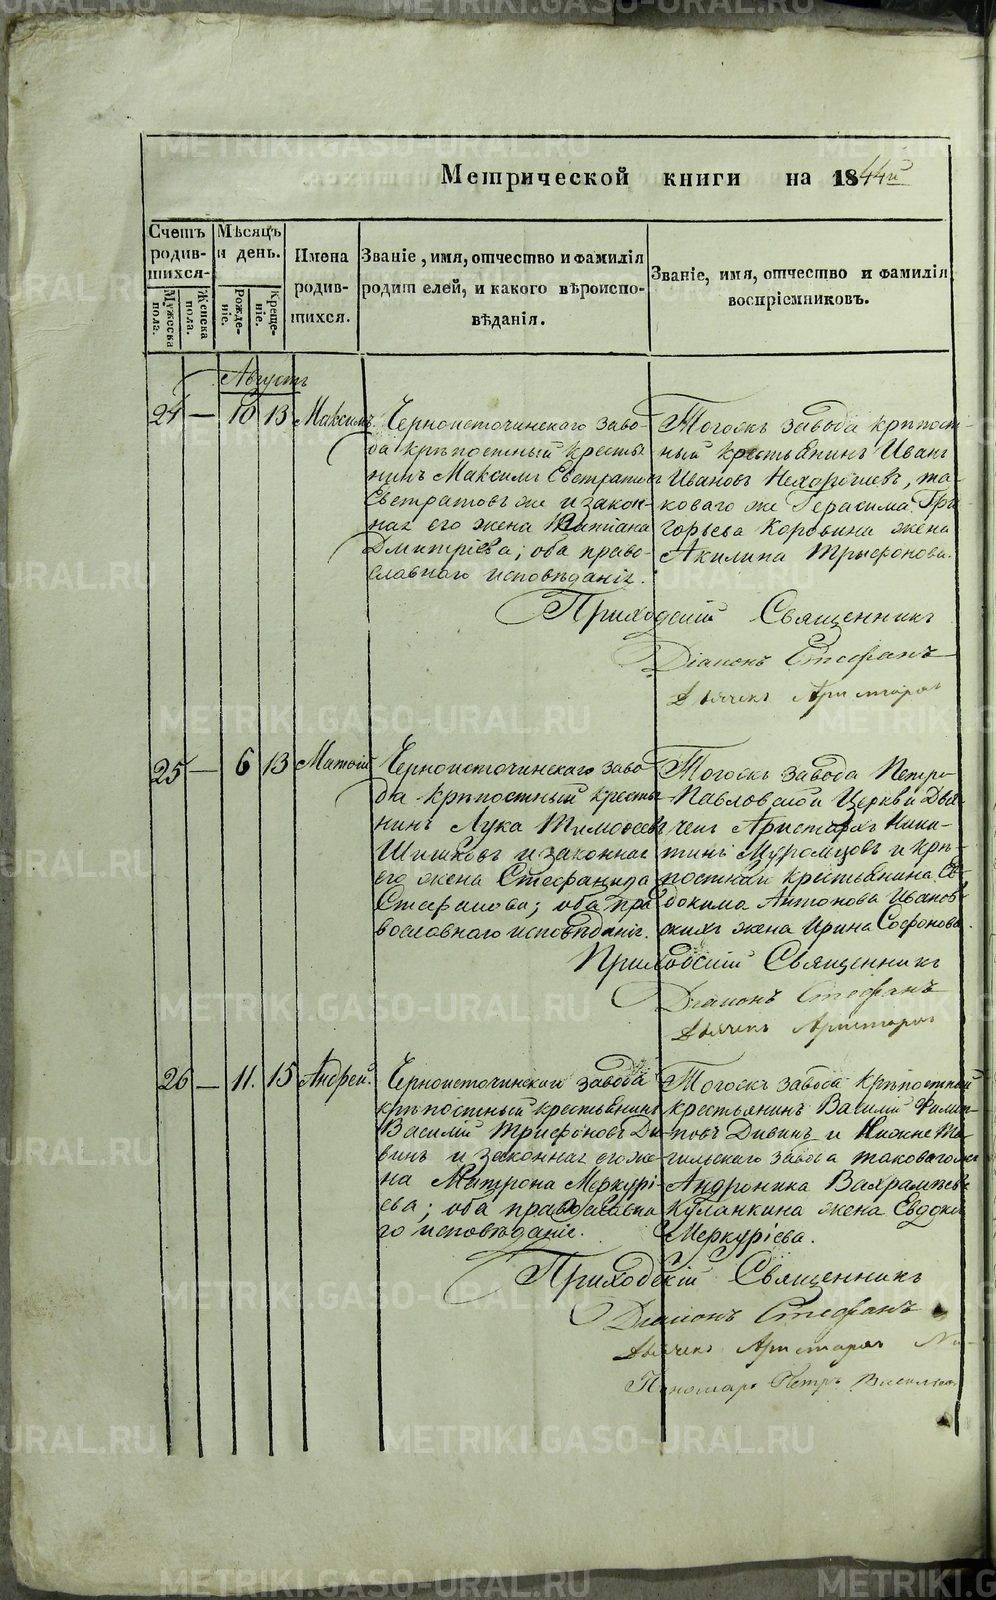 Метрической книги на 1844й
Счетъ родив-шихся.
Мужеска пола.
Женска пола.
Мѣсяцъ и день.
Рожде-ніе.
Креще-ніе.
Имена родив-шихся.
Званіе, имя, отчество и фамилія
родителей, и какого вѣроиспо-
вѣданія.
Званіе, имя, отчество и фамилія
воспріемниковъ.
Августъ
24 — 10 13 Максимъ.
Черноисточинскаго заво-
да крѣпостный кресть-
янинъ Максимъ Евстратов
Евстратовъ же и закон-
ная его жена Татiана
Дмитріева; оба право-
славнаго исповѣданія.
Тогожъ завода крѣпост-
ный крестьянинъ Иванъ
Ивановъ Нехорошевъ, та-
коваго же Герасима Гри-
горьева Коровина жена
Акилина Трифонова.
Приходскій Священникъ
Діаконъ Стефанъ
Дьячекъ Аристархъ
25 — 6 13 Матѳій
Черноисточинскаго заво-
да крѣпостный кресть-
янинъ Лука Тимофеевъ
Шишковъ и законная
его жена Стефанида
Стефанова; оба пра-
вославнаго исповѣданія.
Тогожъ завода Петро-
Павловской Церкви Дья-
чекъ Аристархъ Ники-
тинъ Муромцовъ и крѣ-
постнаго крестьянина Ев-
докима Антонова Иванов-
скихъ жена Ирина Софонова.
Приходскій Священникъ
Діаконъ Стефанъ
Дьячекъ Аристархъ
26 — 11. 15 Андрей.
Черноисточинскаго завода
крѣпостный крестьянинъ
Василій Трифоновъ Ди-
винъ и законная его же-
на Матрона Меркурі-
ева; оба православна-
го исповѣданія.
Тогожъ завода крѣпостный
крестьянинъ Василій Филип-
повъ Дивинъ и Нижне Та-
гильскаго завода таковагоже
Андроника Вахрамѣева
Куланкина жена Евдокія
Меркуріева.
Приходскій Священникъ
Діаконъ Стефанъ
Дьячекъ Аристархъ Ни-
Пономарь Петръ Васильевъ
METRIKI.GASO-URAL.RU